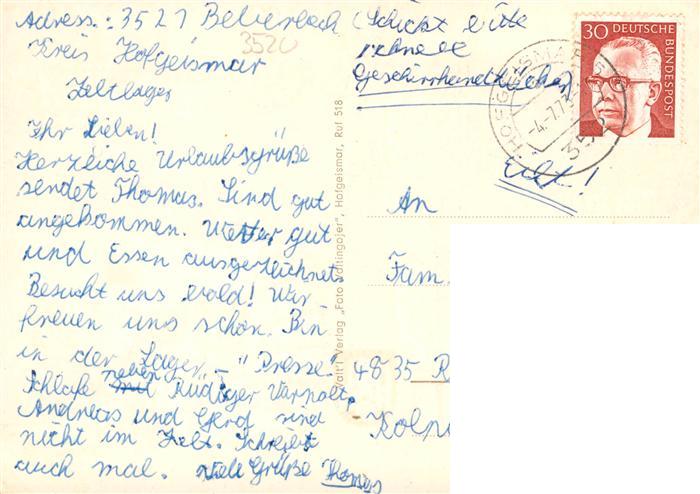 Adress.: 3521 Beberbeck
Kreis Hofgeismar
Zeltlager
3520
(Schickt bitte
schnell
Geschirrhandtücher)
Eilt!
30 DEUTSCHE BUNDESPOST
HOFGEISMAR
-4.7.7
Ihr Lieben!
Herzliche Urlaubsgrüße
sendet Thomas. Sind gut
angekommen. Wetter gut
und Essen ausgezeichnet.
Besucht uns bald! Wir
freuen uns schon. Bin
in der Lager - "Presse".
Schlafe neben Rüdiger Varnholt,
Andreas und Gerd sind
nicht im Zelt. Schreibt
auch mal. Viele Grüße Thomas
Verlag „Foto Valtingojer", Hofgeismar, Ruf 518
An
Fam.
4835 R
Kolp